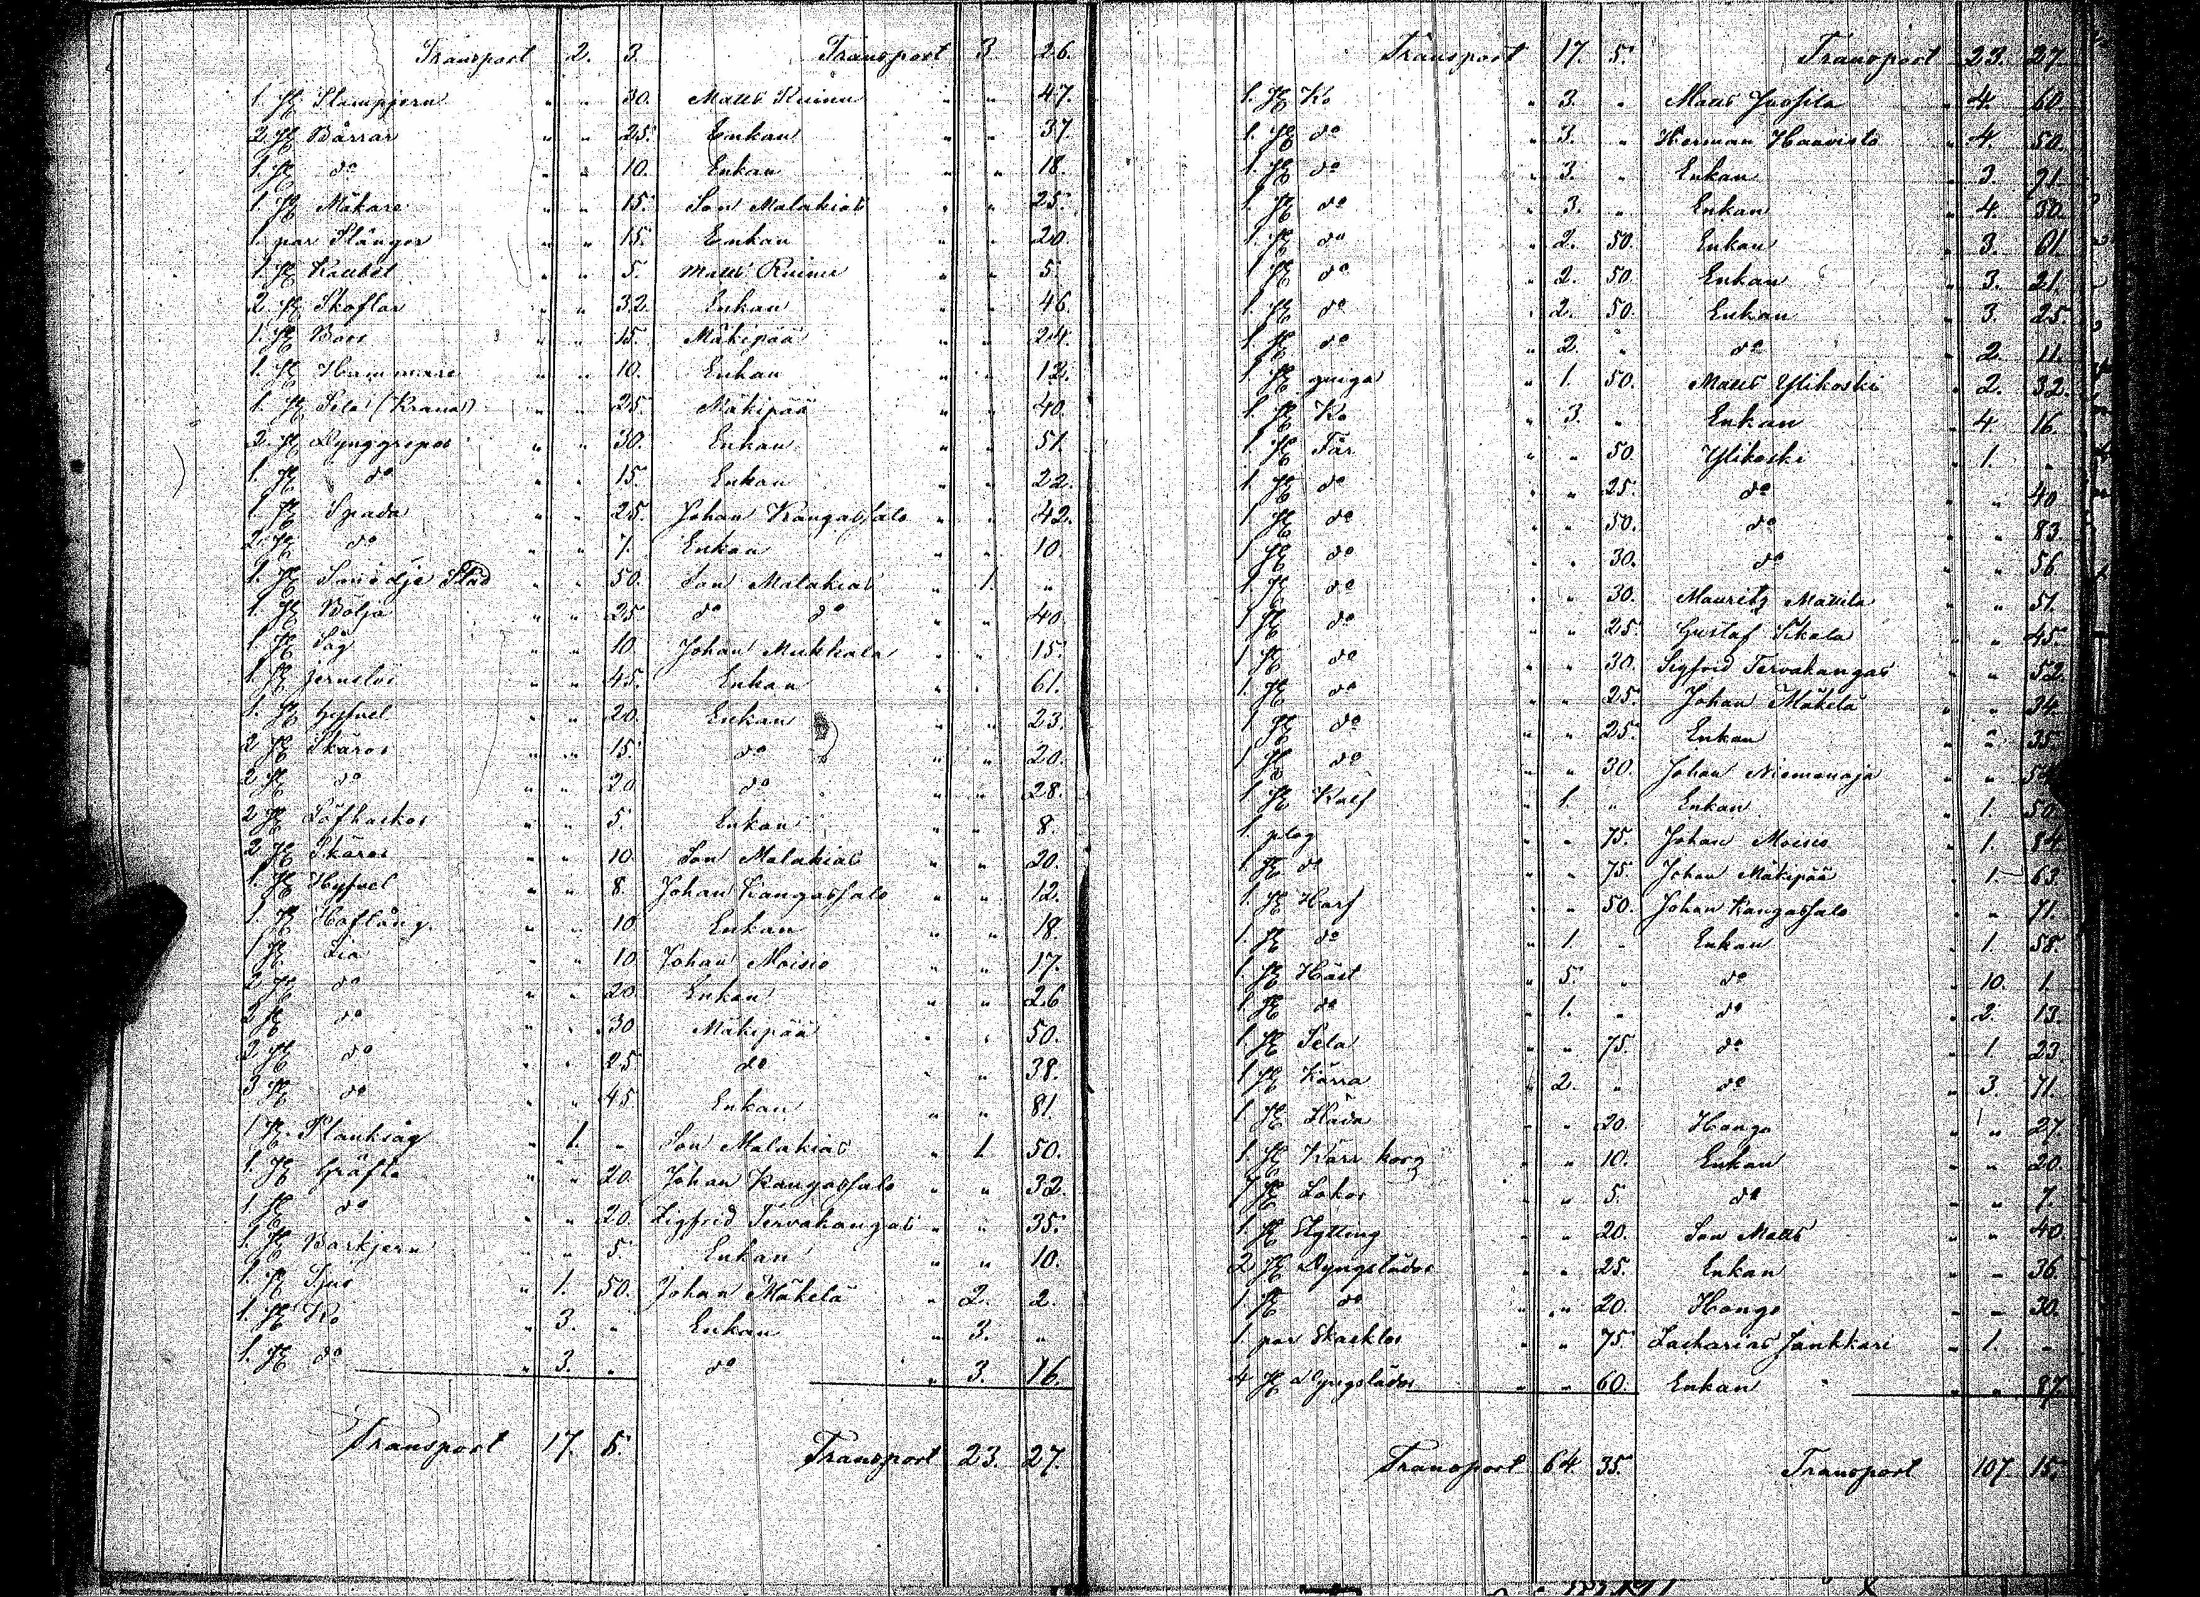 Transport 2. 3. Transport 3. 26.
1. st Stampjern " " 30. Matts Ruimu " " 47.
2 st Bårrar " " 25. Enkan " " 37.
1. st do " " 10. Enkan " " 18.
1. st Måkare " " 15. Son Malakias " " 25.
1. par Stänger " " 15. Enkan " " 20.
1. st " " 5. Matts Ruimu " " 5.
2 st Skoflar " " 32. Enkan " " 46.
1. st Borr " " 15. Mäkipää " " 24.
1. st Hammare " " 10. Enkan " " 12.
1. st Sela (Kranas) " " 25. Mäkipää " " 40.
2. st Dynggrepar " " 30. Enkan " " 51.
1. st do " " 15. Enkan " " 22.
1. st Spada " " 25. Johan Kangassalo " " 42.
2. st do " " 7. Enkan " " 10.
1. st Städ " " 50. Son Malakias " 1. "
1. st Bälja " " 25 do do " " 40.
1. st Såg " " 10. Johan Mukkala " " 15.
1. st jernslöi " " 45. Enkan " " 61.
1. st hyfvel " " 20. Enkan " " 23.
2 st Skäror " " 15. do " " 20.
2 st do " " 20 do " " 28.
2 st Löfhaskor " " 5. Enkan " " 8.
2 st Skäror " " 10. Son Malakias " " 20.
1. st Hyfvel " " 8. Johan Kangassalo " " 12.
1. st Hoftång " " 10 Enkan " " 18.
1 st Lia " " 10 Johan Moisio " " 17.
2 st do " " 20 Enkan " " 26
2 st do " " 30 Mäkipää " " 50.
2 st do " " 25 do " " 38.
3 st do " " 45 Enkan " " 81.
1 st Planksåg " 1. " Son Malakias " 1 50.
1. st Gräfta " " 20. Johan Kangassalo " " 32.
1 st do " " 20. Sigfrid Tervakangas " " 35.
1. st Barkjern " " 5 Enkan " " 10.
1. st Tjur " 1. 50. Johan Mäkelä " 2. 2.
1. st Ko " 3. " Enkan " 3. "
1. st do " 3. " do " 3. 16.
Transport 17. 5. Transport 23. 27.
Transport 17. 5. Transport 23. 27.
1. st Ko " 3. " Matts Jussila " 4. 60.
1. st do " 3. " Herman Haavisto " 4. 50.
1. st do " 3. " Enkan " 3. 91.
1. st do " 3. " Enkan " 4. 30.
1. st do " 2. 50. Enkan " 3. 61.
1 st do " 2. 50. Enkan " 3. 21.
1 st do " 2. 50. Enkan " 3. 25.
1 st do " 2. " do " 2. 11.
1 st qviga " 1. 50. Matts Ylikoski " 2. 32.
1. st Ko " 3. " Enkan " 4. 16.
1. st Får " " 50. Ylikoski " 1. "
1 st do " " 25. do " " 40
1 st do " " 50. do " " 83.
1 st do " " 30. do " " 56
1. st do " " 30. Mauritz Mattila " " 51.
1 st do " " 25. Gustaf Sikala " " 45.
1 st do " " 30. Sigfrid Tervakangas " " 52
1. st do " " 25. Johan Mäkelä " " 34.
1 st do " " 25. Enkan " " 35.
1 st do " " 30. Johan Niemenaja " "
1 st Kalf " 1. " Enkan " 1. 50.
1. plog " " 75. Johan Moisio " 1. 84
1 st do " " 75. Johan Mäkipää " 1. 63.
1. st Harf " " 50. Johan Kangassalo " " 71.
1. st do " 1. " Enkan " 1. 58.
1. st Häst " 5. " do " 10. 1.
1. st do " 1. " do " 2. 13.
1 st Sela " " 75. do " 1. 23.
1 st Kärra " 2. " do " 3. 71.
1 st Släda " " 20. Hango " " 27.
1. st Kärr korg " " 10. Enkan " " 20.
st Lokor " " 5. do " " 7.
1. st Skytting " " 20. Son Matts " " 40.
2 st Dyngslädor " " 25. Enkan " " 36.
1 st do " " 20. Hango " " 30.
1. par Skacklor " " 75. Zacharias Jankkari " 1. "
4 st Dyngslädor " " 60. Enkan " " 87.
Transport 64. 35. Transport 107. 15.